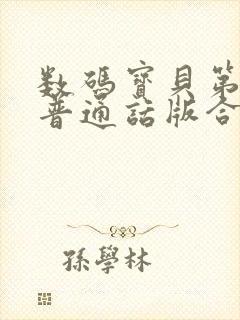 数碼寶貝第
普通話版合
孫學林